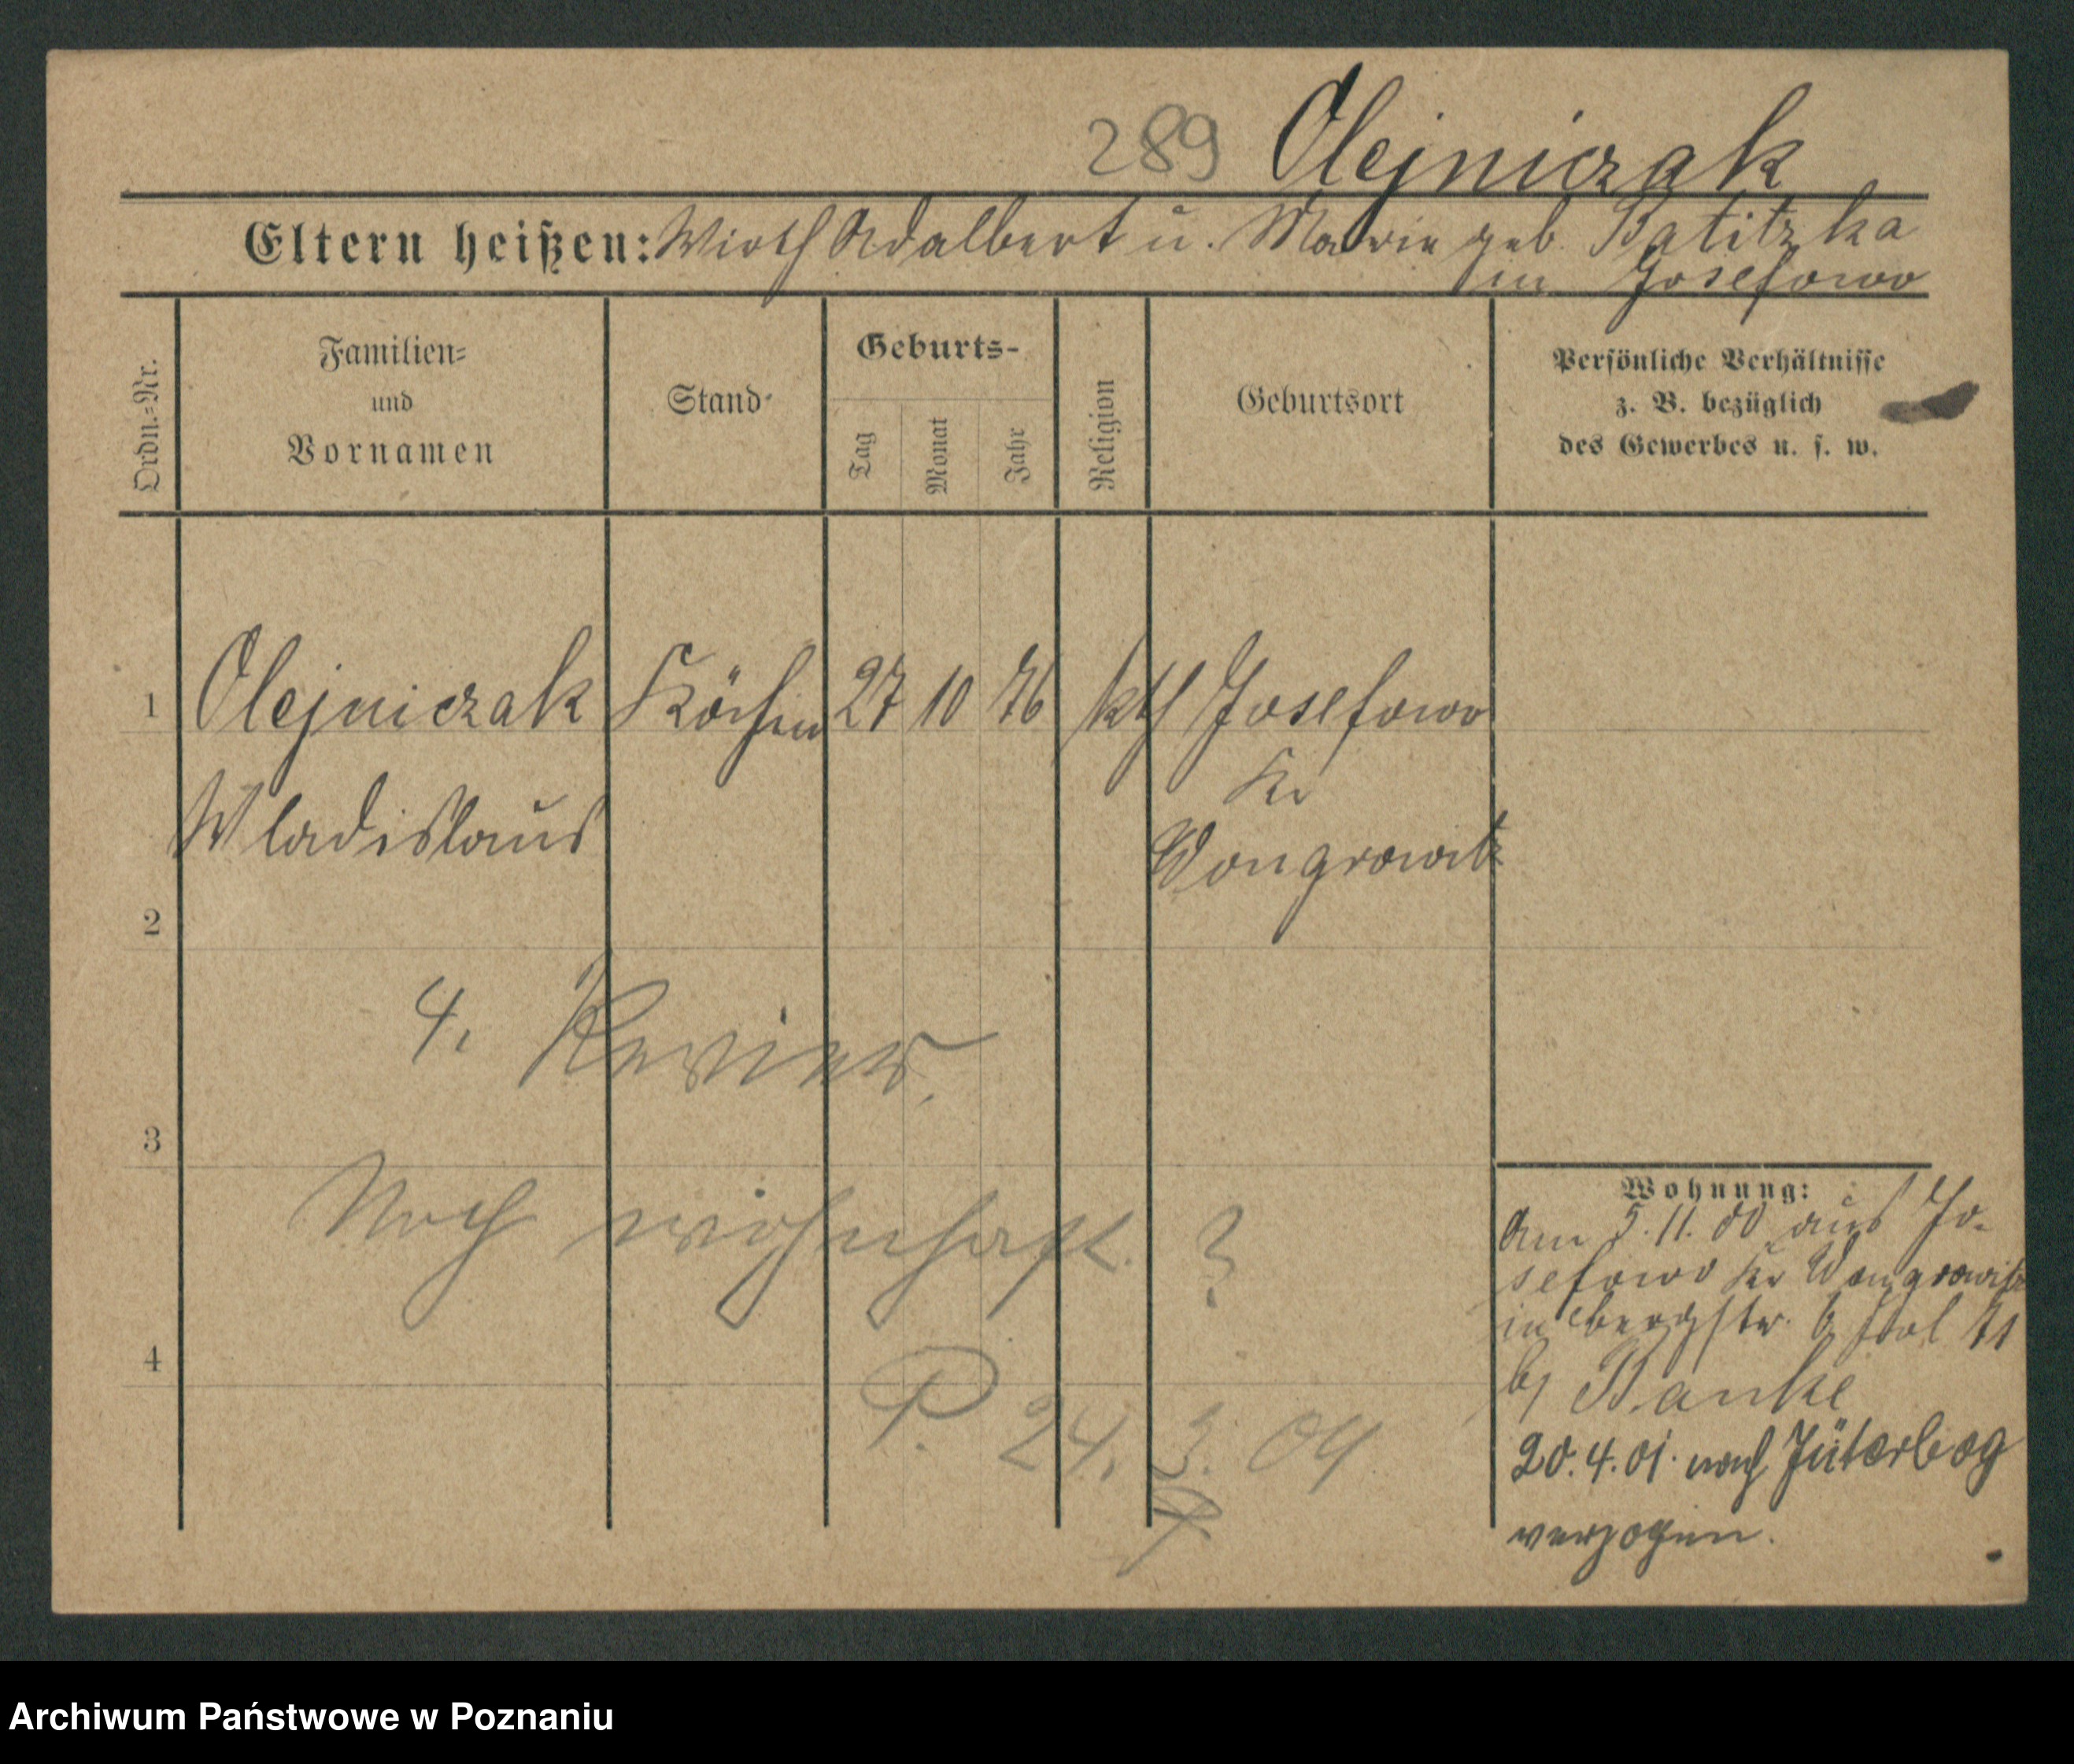 289 Olejniczak
Eltern heißen: Wirth Adalbert u. Marie geb. Batitzka
in Josefowo
Ordn.=Nr.
Familien=
und
Vornamen
Stand
Geburts-
Tag
Monat
Jahr
Religion
Geburtsort
Persönliche Verhältnisse
z. B. bezüglich
des Gewerbes u. s. w.
1 Olejniczak Köchin 27 10 76 kth Josefowo
Kr
Wladislaus Wongrowitz
2
4. Revier.
3
Noch wohnhaft. ?
4
P. 24. 3. 04
Wohnung:
Am 5.11.00 aus Jo-
sefowo Kr Wongrowitz
in bergstr. 6
b/ Banke
20.4.01. nach Jüterbog
verzogen.
Archiwum Państwowe w Poznaniu